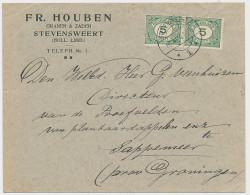 FR. HOUBEN
GRANEN & ZADEN
STEVENSWEERT
(HOLL. LIMB.)
TELEPH. No. 1
5 5
Den WelEd. Heer G. Veenhuizen
Directeur
van de Proefvelden
van plantaardappelen enz.
te Sappemeer
(prov. Groningen)